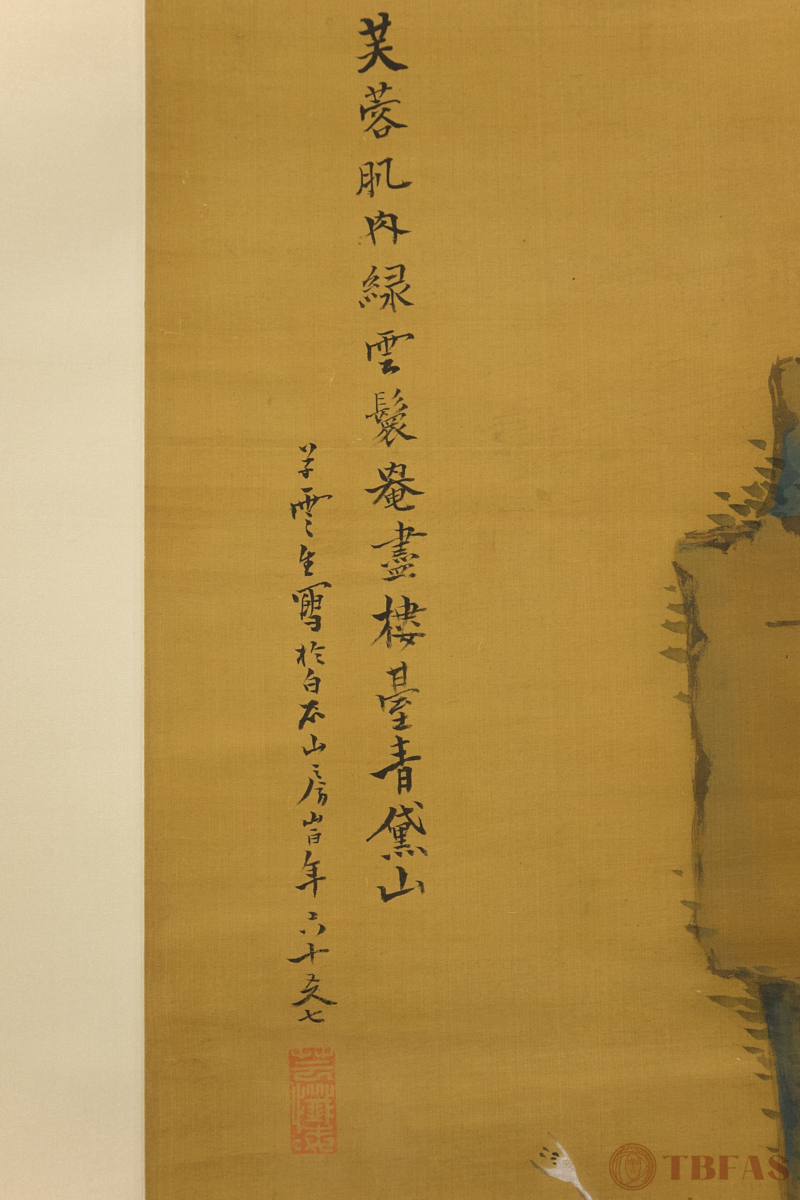 芙蓉肌肉緑雲鬟罨盡樓臺青黛山
雲生寫於白石山房旹年六十又七
TBFAS